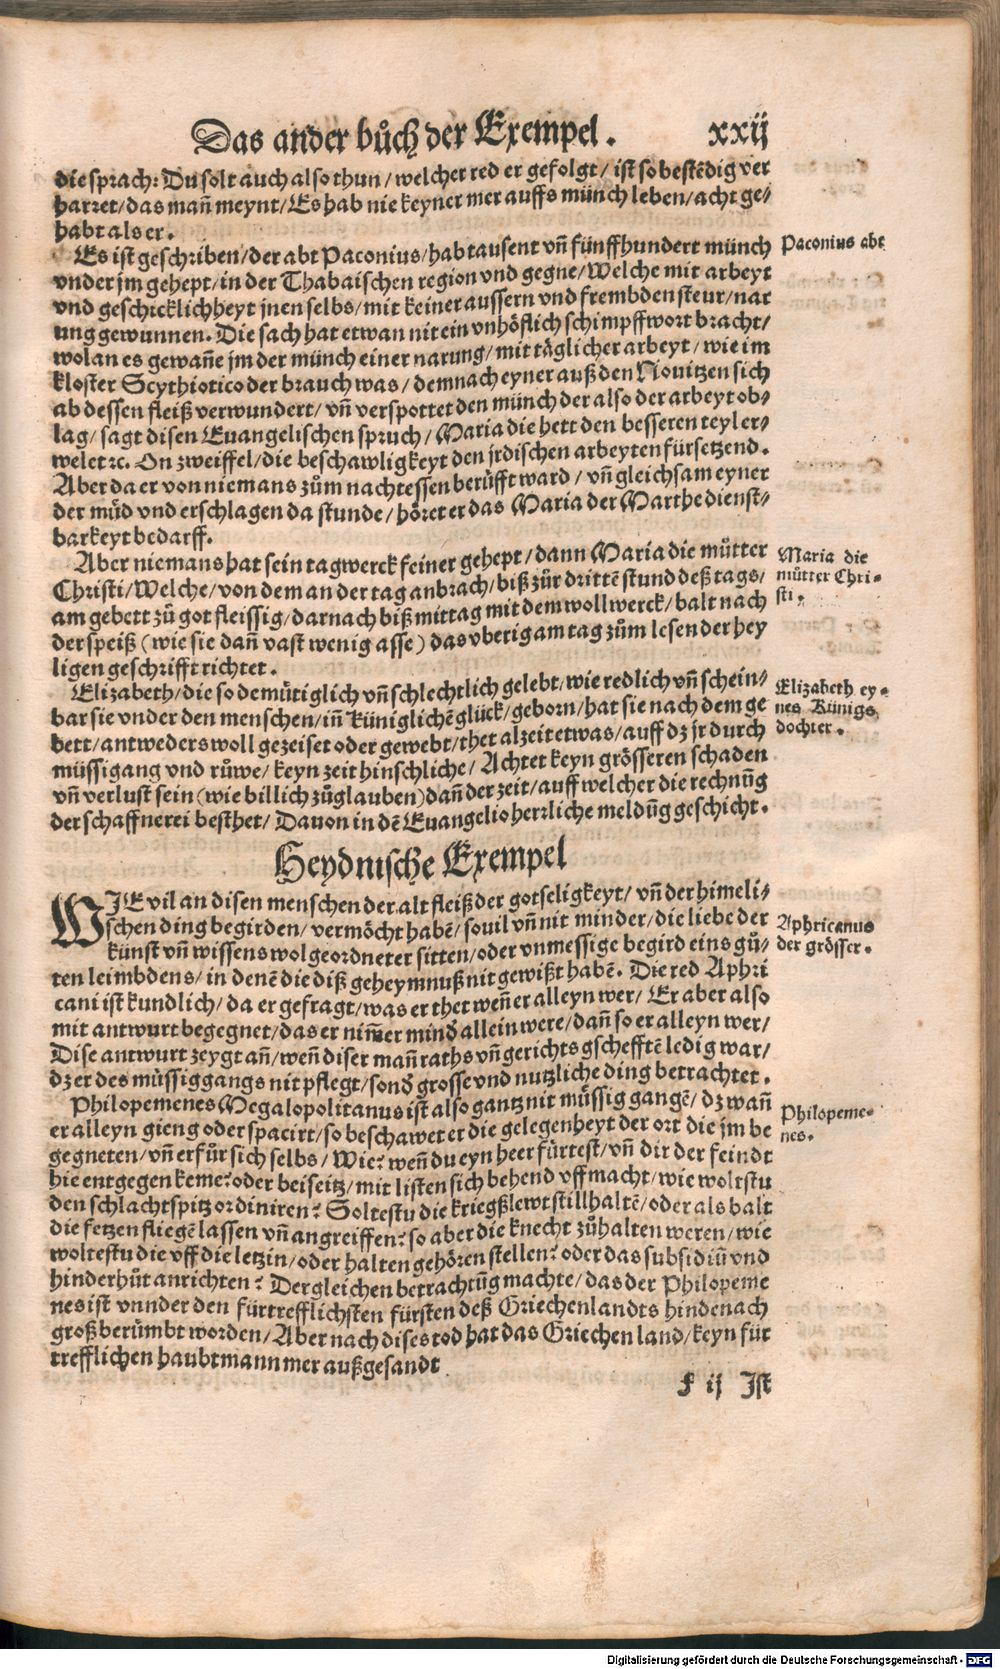 Das ander bůch der Exempel. xxij
die sprach: Du solt auch also thun / welcher red er gefolgt / ist so bestẽdig ver
harret / das mañ meynt / Es hab nie keyner mer auffs münch leben / acht ge⸗
habt als er.
Es ist geschriben / der abt Paconius / hab tausent vñ fünffhundert münch
Paconius abt
vnder jm gehept / in der Thabaischen region vnd gegne / Welche mit arbeyt
vnd geschicklichheyt jnen selbs / mit keiner aussern vnd frembden steur / nar
ung gewunnen. Die sach hat etwan nit ein vnhöflich schimpffwort bracht /
wolan es gewañe jm der münch einer narung / mit täglicher arbeyt / wie im
kloster Scythiotico der brauch was / demnach eyner auß den Nouitzen sich
ab dessen fleiß verwundert / vñ verspottet den münch der also der arbeyt ob⸗
lag / sagt disen Euangelischen spruch / Maria die hett den besseren teyl er⸗
welet ꝛc. On zweiffel / die beschawligkeyt den jrdischen arbeyten fürsetzend.
Aber da er von niemans zům nachtessen berüfft ward / vñ gleichsam eyner
der můd vnd erschlagen da stunde / höret er das Maria der Marthe dienst⸗
barkeyt bedarff.
Aber niemans hat sein tagwerck feiner gehept / dann Maria die můtter
Maria die
můtter Chri⸗
sti.
Christi / Welche / von dem an der tag anbrach / biß zůr drittẽ stund deß tags /
am gebett zů got fleissig / darnach biß mittag mit dem wollwerck / balt nach
der speiß (wie sie dañ vast wenig asse) das vberig am tag zům lesen der hey
ligen geschrifft richtet.
Elizabeth / die so demütiglich vñ schlechtlich gelebt / wie redlich vñ schein⸗
Elizabeth ey⸗
nes Künigs
dochter.
bar sie vnder den menschen / iñ küniglichẽ glück / geborn / hat sie nach dem ge
bett / antweders woll gezeiset oder gewebt / thet alzeit etwas / auff dz jr durch
müssigang vnd růwe / keyn zeit hinschliche / Achtet keyn grösseren schaden
vñ verlust sein (wie billich zůglauben) dañ der zeit / auff welcher die rechnũg
der schaffnerei besthet / Dauon in dẽ Euangelio herrliche meldũg geschicht.
Heydnische Exempel
WIE vil an disen menschen der alt fleiß der gotseligkeyt / vñ der himeli⸗
schen ding begirden / vermöcht habẽ / souil vñ nit minder / die liebe der
Aphricanus
der grösser.
künst vñ wissens wolgeordneter sitten / oder vnmessige begird eins gů⸗
ten leimbdens / in denẽ die diß geheymnuß nit gewißt habẽ. Die red Aphri
cani ist kundlich / da er gefragt / was er thet weñ er alleyn wer / Er aber also
mit antwurt begegnet / das er nim̃er mind̕ allein were / dañ so er alleyn wer /
Dise antwurt zeygt añ / weñ diser mañ raths vñ gerichts gschefftẽ ledig war /
dz er des müssiggangs nit pflegt / sond̕ grosse vnd nutzliche ding betrachtet.
Philopemenes Megalopolitanus ist also gantz nit müssig gangẽ / dz wañ
Philopeme⸗
nes.
er alleyn gieng oder spacirt / so beschawet er die gelegenheyt der ort die jm be
gegneten / vñ erfůr sich selbs / Wie? weñ du eyn heer fürtest / vñ dir der feindt
hie entgegen keme? oder beiseitz / mit listen sich behend vff macht / wie woltstu
den schlachtspitz ordiniren? Soltestu die kriegßlewt stillhaltẽ / oder als balt
die fetzen fliegẽ lassen vñ angreiffen? so aber die knecht zůhalten weren / wie
woltestu die vff die letzin / oder halten gehören stellen? oder das subsidiũ vnd
hinderhůt anrichten? Dergleichen betrachtũg machte / das der Philopeme
nes ist vnnder den fürtrefflichsten fürsten deß Griechenlandts hindenach
groß berümbt worden / Aber nach dises tod hat das Griechen land / keyn für
trefflichen haubtmann mer außgesandt
f ij Ist
Digitalisierung gefördert durch die Deutsche Forschungsgemeinschaft - DFG